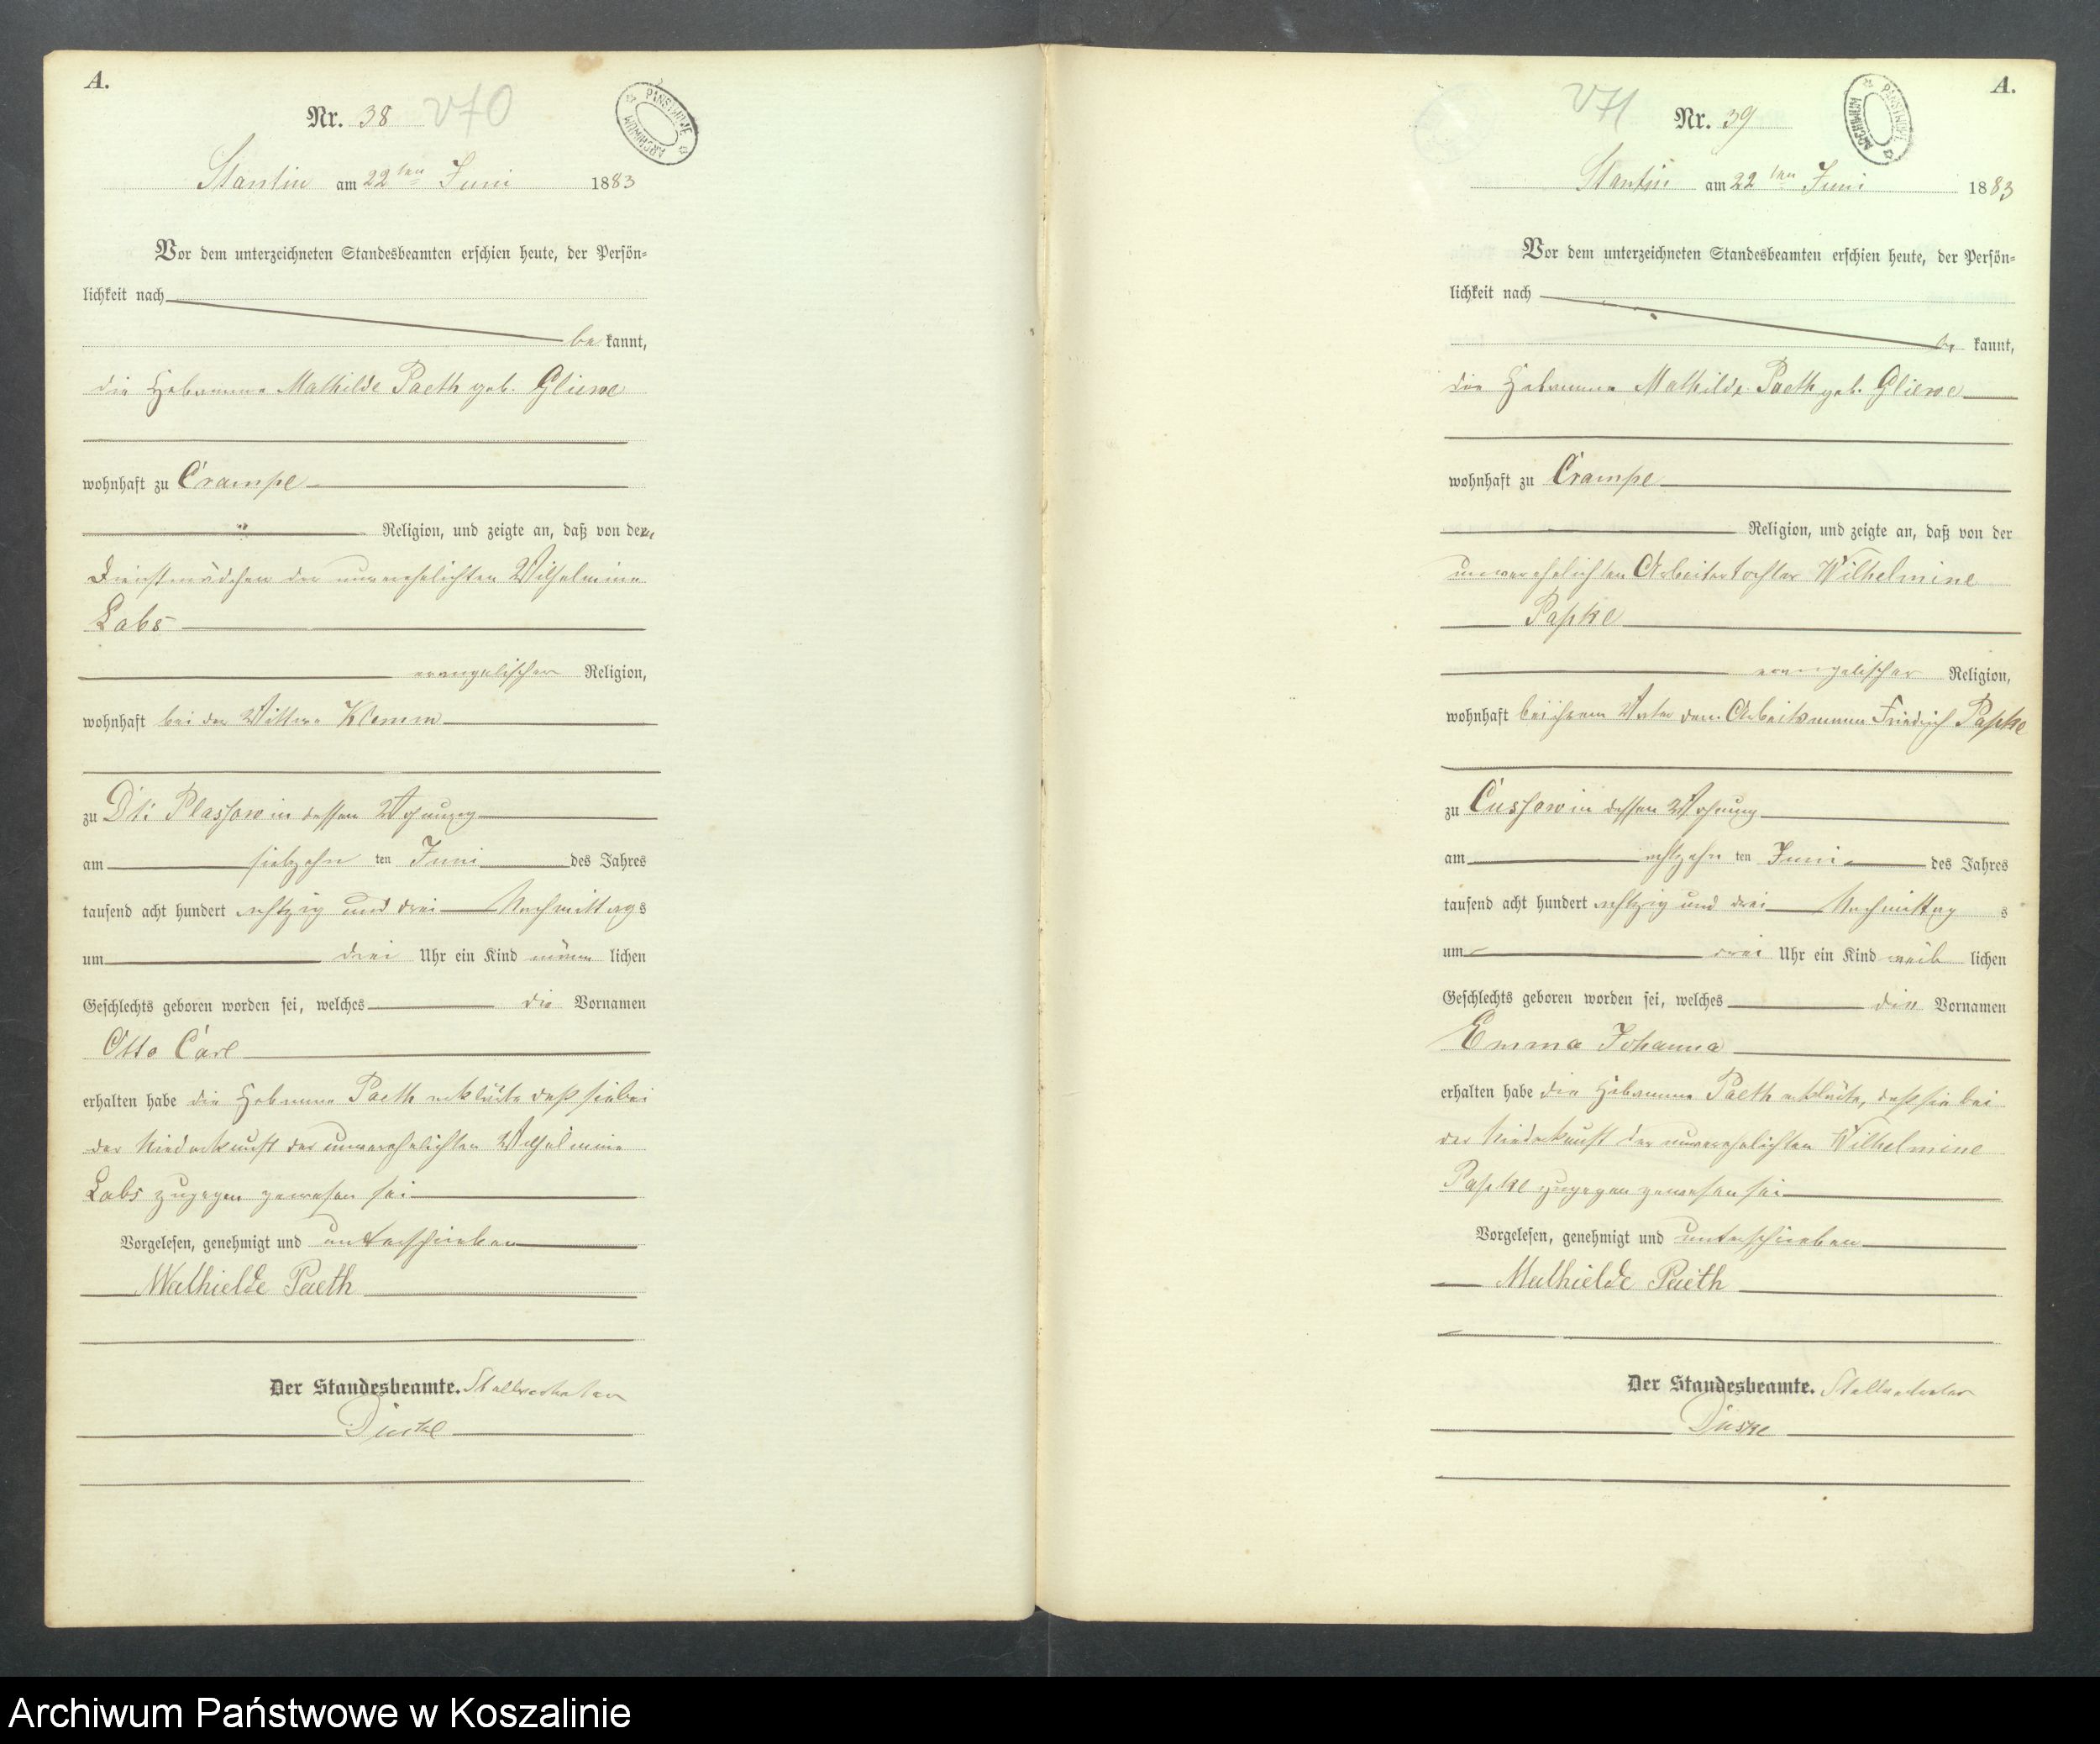 A.
Nr. 38 V70
PAŃSTWOWE ARCHIWUM
Stantin am 22ten Juni 1883
Vor dem unterzeichneten Standesbeamten erschien heute, der Persön=
lichkeit nach
be kannt,
die Hebamme Mathilde Paeth geb. Gliewe
wohnhaft zu Crampe
Religion, und zeigte an, daß von dem
Dienstmädchen der unverehelichten Wilhelmine
Labs
evangelischer Religion,
wohnhaft bei der Wittwe Klemm
zu Dt: Plassow in dessen Wohnung
am siebzehn ten Juni des Jahres
tausend acht hundert achtzig und drei Nachmittags
um drei Uhr ein Kind männ lichen
Geschlechts geboren worden sei, welches die Vornamen
Otto Carl
erhalten habe die Hebamme Paeth erklärte daß sie bei
der Niederkunft der unverehelichten Wilhelmine
Labs zugegen gewesen sei
Vorgelesen, genehmigt und unterschrieben
Mathielde Paeth
Der Standesbeamte. Stellvertreter
A.
V71 Nr. 39
PAŃSTWOWE ARCHIWUM
Stantin am 22 ten Juni 1883
Vor dem unterzeichneten Standesbeamten erschien heute, der Persön=
lichkeit nach
be kannt,
die Hebamme Mathilde Paeth geb. Gliewe
wohnhaft zu Crampe
Religion, und zeigte an, daß von der
unverehelichten Arbeitertochter Wilhelmine
Papke
evangelischer Religion,
wohnhaft bei ihrem Vater dem Arbeitsmann Friedrich Papke
zu Cussow in dessen Wohnung
am achtzehn ten Juni des Jahres
tausend acht hundert achtzig und drei Nachmittag s
um drei Uhr ein Kind weib lichen
Geschlechts geboren worden sei, welches die Vornamen
Emma Johanna
erhalten habe die Hebamme Paeth erklärte, daß sie bei
der Niederkunft der unverehelichten Wilhelmine
Papke zugegen gewesen sei
Vorgelesen, genehmigt und unterschrieben
Mathielde Paeth
Der Standesbeamte. Stellvertreter
Archiwum Państwowe w Koszalinie